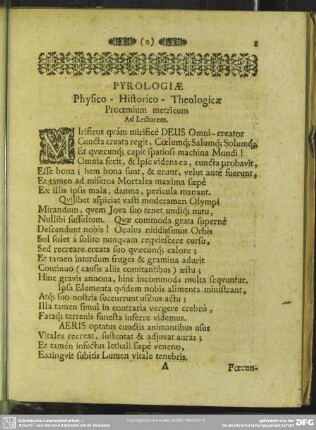 (o)
PYROLOGIÆ
Physico - Historico - Theologicæ
Proœmium metricum
Ad Lectorem.
MIrificus quàm mirificè DEUS Omni-creator
Cuncta creata regit, Cœlumq; Salumq; Solumq;
Et quæcunq; capit spatiosi machina Mundi!
Omnia fecit, & Ipse videns ea, cuncta probavit,
Esse bona; hem bona sunt, & erunt, velut antè fuerunt,
Et tamen ad miseros Mortales maxima sæpè
Ex illis ipsis mala, damna, pericula manant.
Quilibet aspiciat vasti moderamen Olympi
Mirandum, qvem Jova suo tenet undiq; nutu,
Nullibi suffultum. Quæ commoda grata supernè
Descendunt nobis! Oculus nitidissimus Orbis
Sol solet à solito nunqvam reqviescere cursu,
Sed recreare creata suo quæcunq; calore;
Et tamen interdum fruges & gramina adurit
Continuo (causis aliis comitantibus) æstu;
Hinc gravis annona, hinc incommoda multa seqvuntur.
Ipsa Elementa qvidem nobis alimenta ministrant,
Atq; suo nostris succurrunt usibus actu;
Illa tamen simul in contraria vergere crebrò,
Fataq; terrenis funesta inferre videmus.
AERIS optatus cunctis animantibus usus
Vitales recreat, sustentat & adjuvat auras;
Et tamen infectus lethali sæpè veneno,
Extingvit subitò Lumen vitale tenebris.
A
Fœcun-